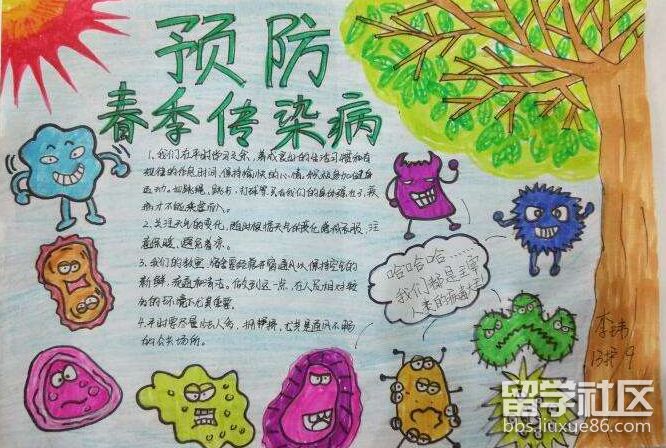 预防
春季传染病
1、我们在平时学习之余,养成良好的生活习惯和有
规律的作息时间,保持愉快的心情,积极参加健身
运动。如跳绳、跑步、打球等。只有我们的身体强壮了,疾
病才不能乘虚而入。
2、关注天气的变化,随时根据天气的变化增减衣服,注
意保暖,避免着凉。
3、我们的教室、宿舍要经常开窗通风以保持空气的
新鲜,
做到这一点,在人员相对较
的环境下尤其重要。
4、平时要尽量少去人多、拥挤、尤其是通风不畅
的公共场所。
哈哈哈……
我们都是主宰
人类的病毒大王
李
13护9
留学社区
bbs.liuxue86.com